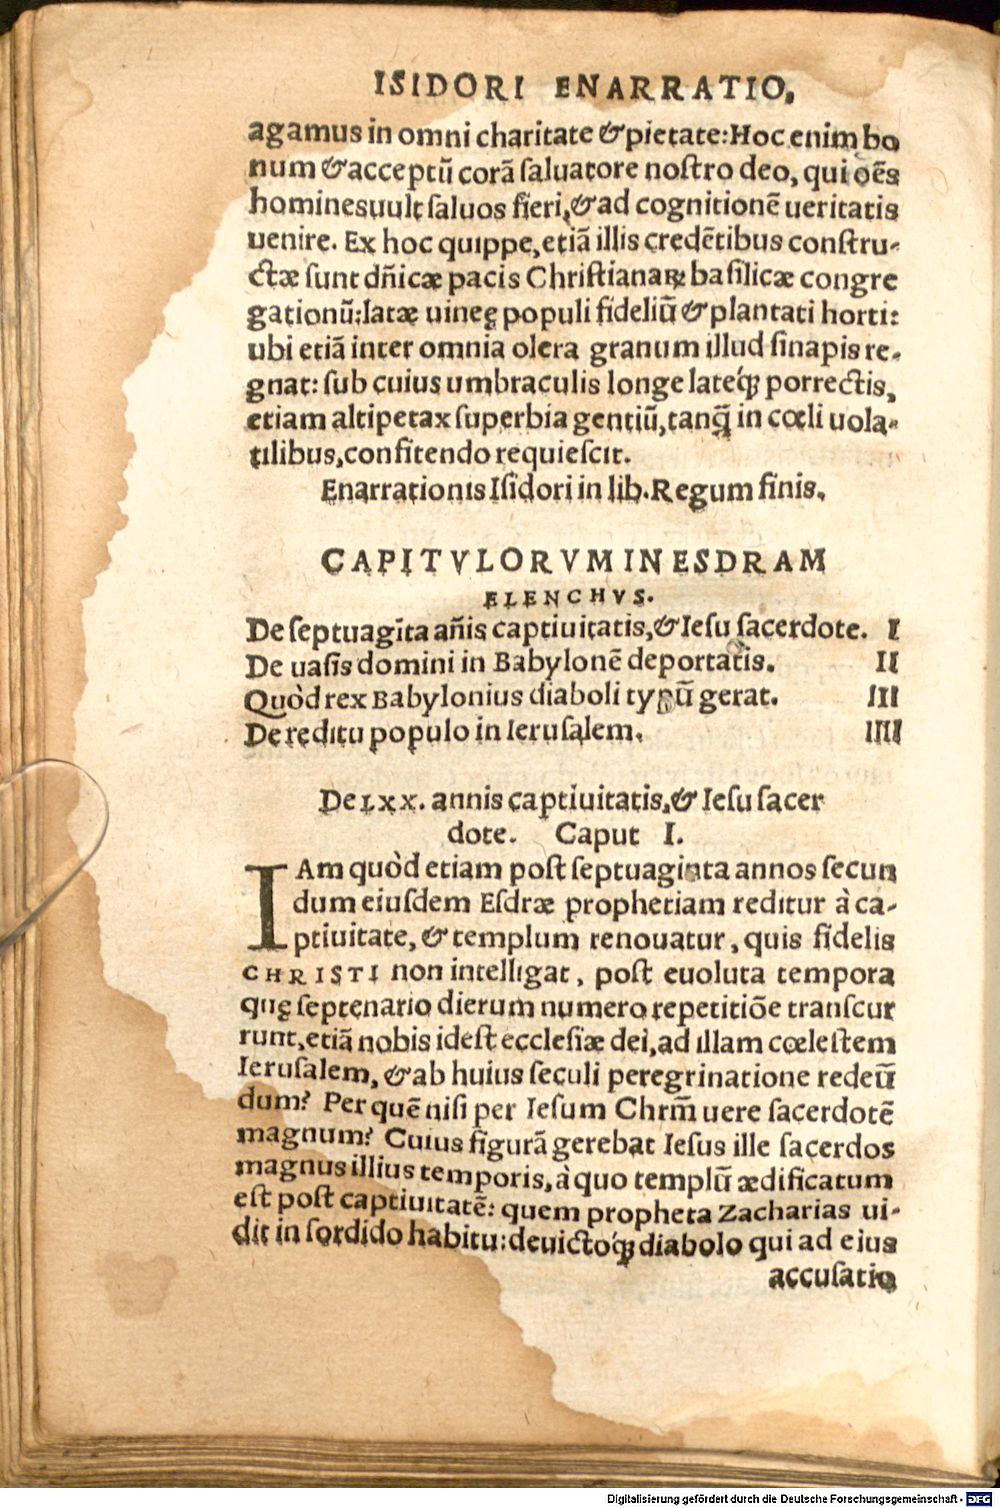 ISIDORI ENARRATIO,
agamus in omni charitate & pietate: Hoc enim bo
num & acceptū corā ſaluatore noſtro deo, qui oēs
homines uult ſaluos fieri, & ad cognitionē ueritatis
uenire. Ex hoc quippe, etiā illis credētibus conſtru-
ctæ ſunt dñicæ pacis Chriſtianaꝝ baſilicæ congre
gationū: latæ uineę populi fideliū & plantati horti:
ubi etiā inter omnia olera granum illud ſinapis re-
gnat: ſub cuius umbraculis longe lateq́ꝫ porrectis,
etiam altipetax ſuperbia gentiū, tanq̄ in cœli uola-
tilibus, confitendo requieſcit.
Enarrationis Iſidori in lib. Regum finis.
CAPITVLORVM IN ESDRAM
ELENCHVS.
De ſeptuagīta añis captiuitatis, & Ieſu ſacerdote. I
De uaſis domini in Babylonē deportatis. II
Quòd rex Babylonius diaboli typū gerat. III
De reditu populo in Ieruſalem. IIII
De LXX. annis captiuitatis, & Ieſu ſacer
dote. Caput I.
IAm quòd etiam poſt ſeptuaginta annos ſecun
dum eiuſdem Eſdræ prophetiam reditur à ca-
ptiuitate, & templum renouatur, quis fidelis
CHRISTI non intelligat, poſt euoluta tempora
quę ſeptenario dierum numero repetitiōe tranſcur
runt, etiā nobis ideſt eccleſiæ dei, ad illam cœleſtem
Ieruſalem, & ab huius ſeculi peregrinatione redeū
dum? Per quē niſi per Ieſum Chrm̄ uere ſacerdotē
magnum? Cuius figurā gerebat Ieſus ille ſacerdos
magnus illius temporis, à quo templū ædificatum
eſt poſt captiuitatē: quem propheta Zacharias ui-
dit in ſordido habitu: deuictoq́ꝫ diabolo qui ad eius
accuſatio
Digitalisierung gefördert durch die Deutsche Forschungsgemeinschaft - DFG